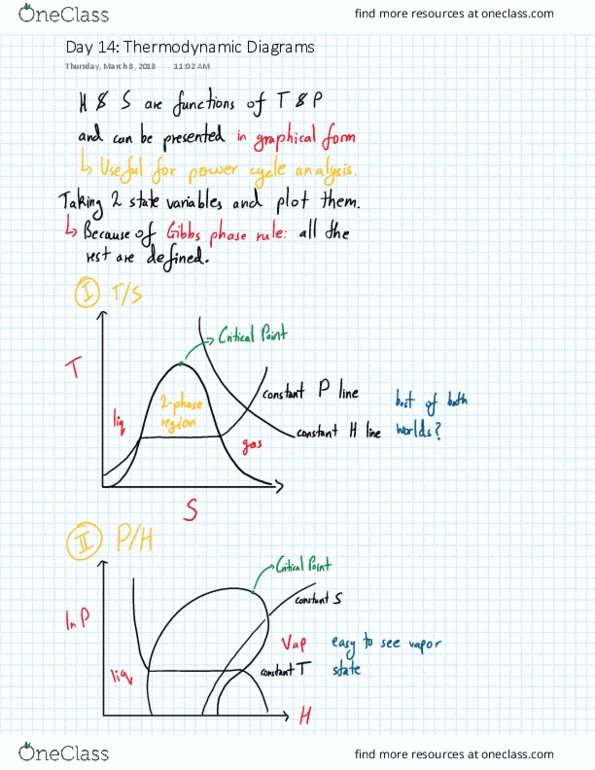 OneClass
find more resources at oneclass.com
Day 14: Thermodynamic Diagrams
Thursday, March 8, 2018 11:02 AM
H & S are functions of T & P
and can be presented in graphical form
↳ Useful for power cycle analysis.
Taking 2 state variables and plot them.
↳ Because of Gibbs phase rule: all the
rest are defined.
I T/S
Critical Point
T
constant P line
2-phase
region
liq
best of both
worlds?
constant H line
gas
S
II P/H
Critical Point
constant S
ln P
Vap
easy to see vapor
state
liq
constant T
H
OneClass
find more resources at oneclass.com